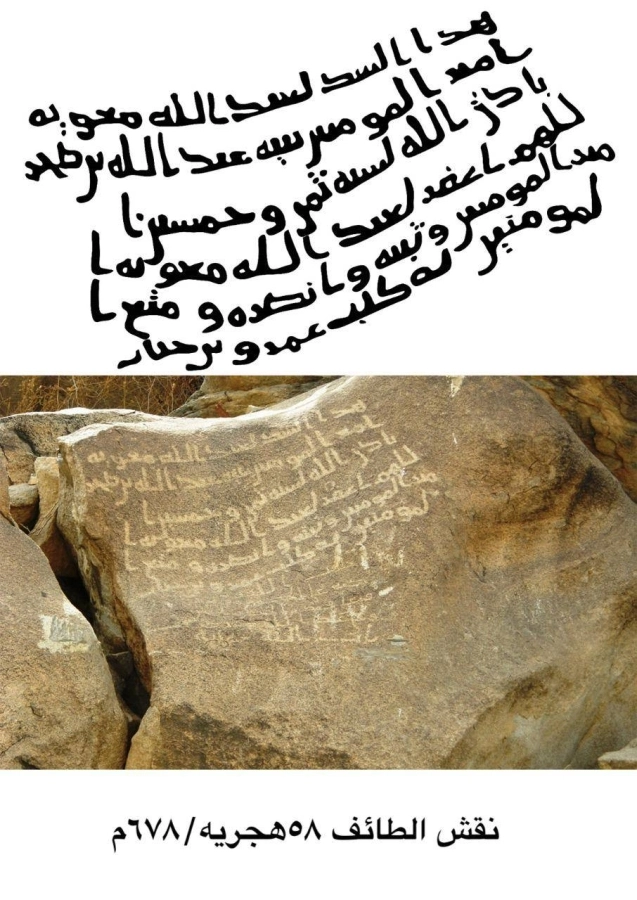 هدا السد لعبد الله معويه
امير المومنين بنيه عبد الله بن صخر
باذن الله لسنه ثمن وخمسين ا
للهم اغفر لعبد الله معويه ا
مير المومنين وثبته وانصره ومتع ا
لمومنين به كتب عمرو بن حباب
نقش الطائف ٥٨هجريه/٦٧٨م